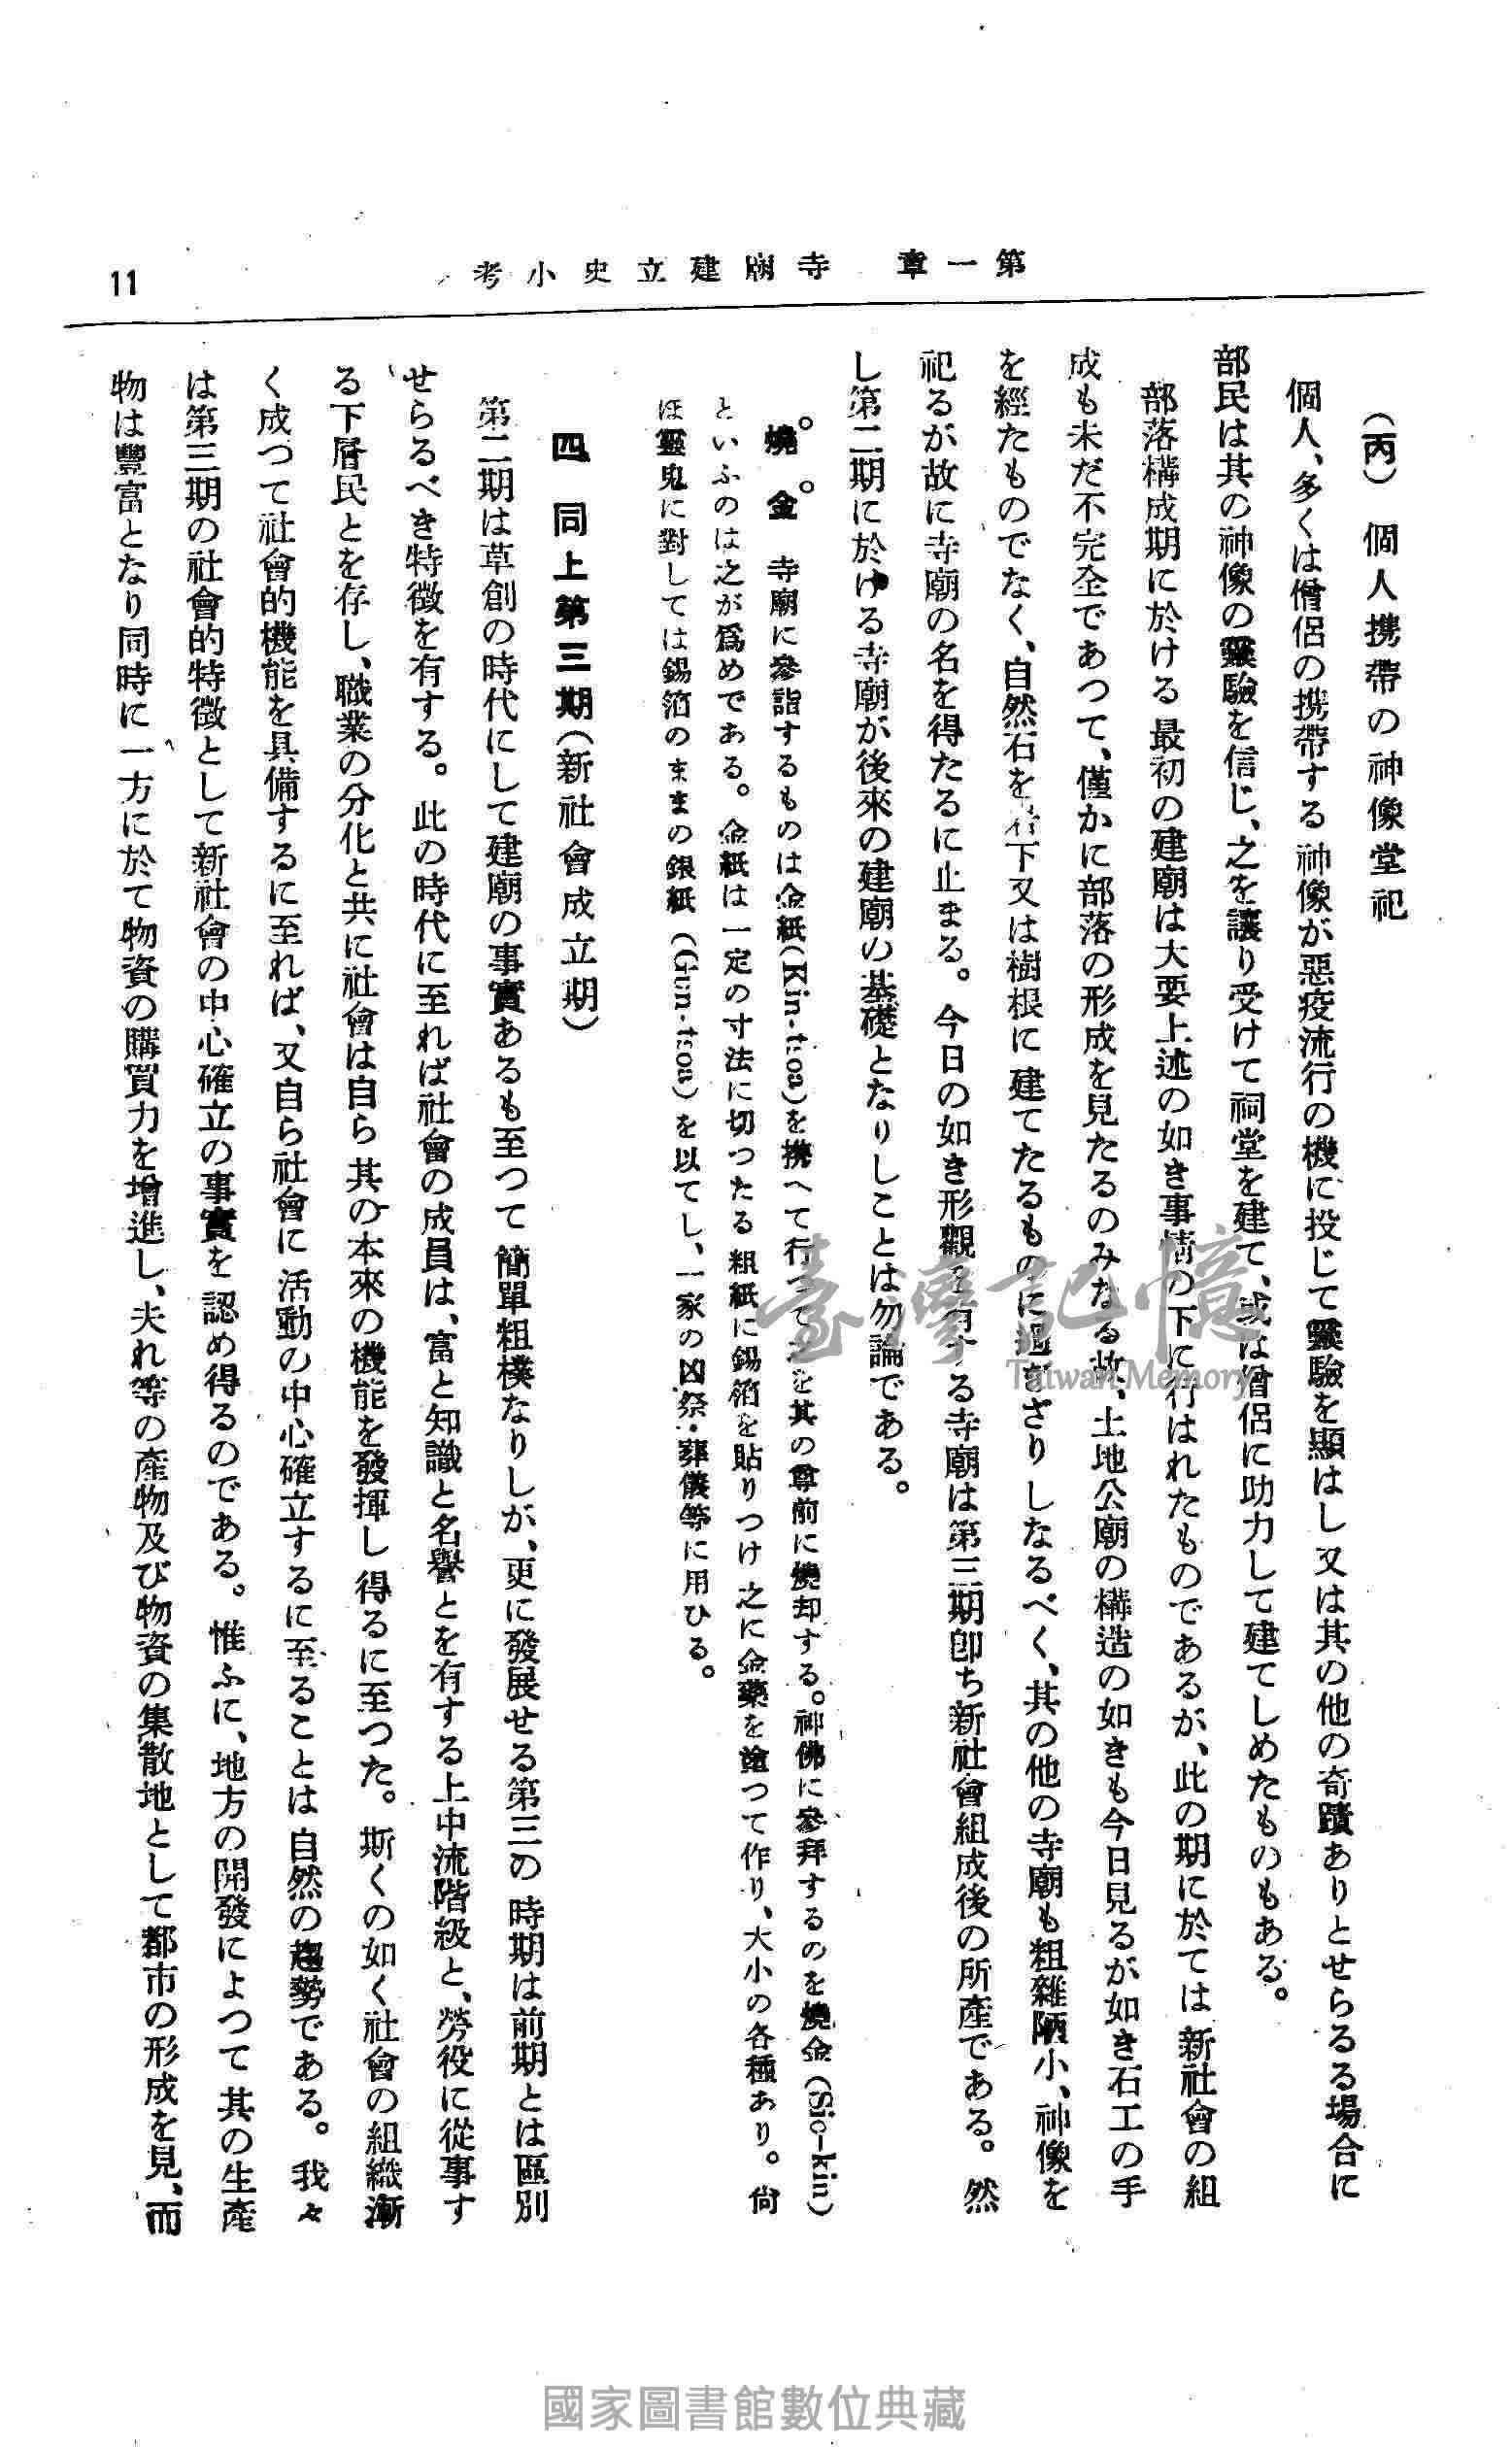 第一章　寺廟建立史小考
11
（丙）　個人携帶の神像堂祀
個人、多くは僧侶の携帶する神像が惡疫流行の機に投じて靈驗を顯はし又は其の他の奇蹟ありとせらるる場合に
部民は其の神像の靈驗を信じ、之を讓り受けて祠堂を建て、或は僧侶に助力して建てしめたものもある。
部落構成期に於ける最初の建廟は大要上述の如き事情の下に行はれたものであるが、此の期に於ては新社會の組
成も未だ不完全であつて、僅かに部落の形成を見たるのみなる故、土地公廟の構造の如きも今日見るが如き石工の手
を經たものでなく、自然石を岩下又は樹根に建てたるものに過ぎざりしなるべく、其の他の寺廟も粗雜陋小、神像を
祀るが故に寺廟の名を得たるに止まる。今日の如き形觀を有する寺廟は第三期卽ち新社會組成後の所產である。然
し第二期に於ける寺廟が後來の建廟の基礎となりしことは勿論である。
燒金　寺廟に參詣するものは金紙(Kin-tsoa)を携へて行つて之を其の尊前に燒却する。神佛に參拜するのを燒金(Sio-kin)
といふのは之が爲めである。金紙は一定の寸法に切つたる粗紙に錫箔を貼りつけ之に金藥を塗つて作り、大小の各種あり。尙
ほ靈鬼に對しては錫箔のままの銀紙(Gun-tsoa)を以てし、一家の凶祭・葬儀等に用ひる。
四　同上第三期（新社會成立期）
第二期は草創の時代にして建廟の事實あるも至つて簡單粗樸なりしが、更に發展せる第三の時期は前期とは區別
せらるべき特徵を有する。此の時代に至れば社會の成員は、富と知識と名譽とを有する上中流階級と、勞役に從事す
る下層民とを存し、職業の分化と共に社會は自ら其の本來の機能を發揮し得るに至つた。斯くの如く社會の組織漸
く成つて社會的機能を具備するに至れば、又自ら社會に活動の中心確立するに至ることは自然の趨勢である。我々
は第三期の社會的特徵として新社會の中心確立の事實を認め得るのである。惟ふに、地方の開發によつて其の生產
物は豐富となり同時に一方に於て物資の購買力を增進し、夫れ等の產物及び物資の集散地として都市の形成を見、而
臺灣記憶
Taiwan Memory
國家圖書館數位典藏